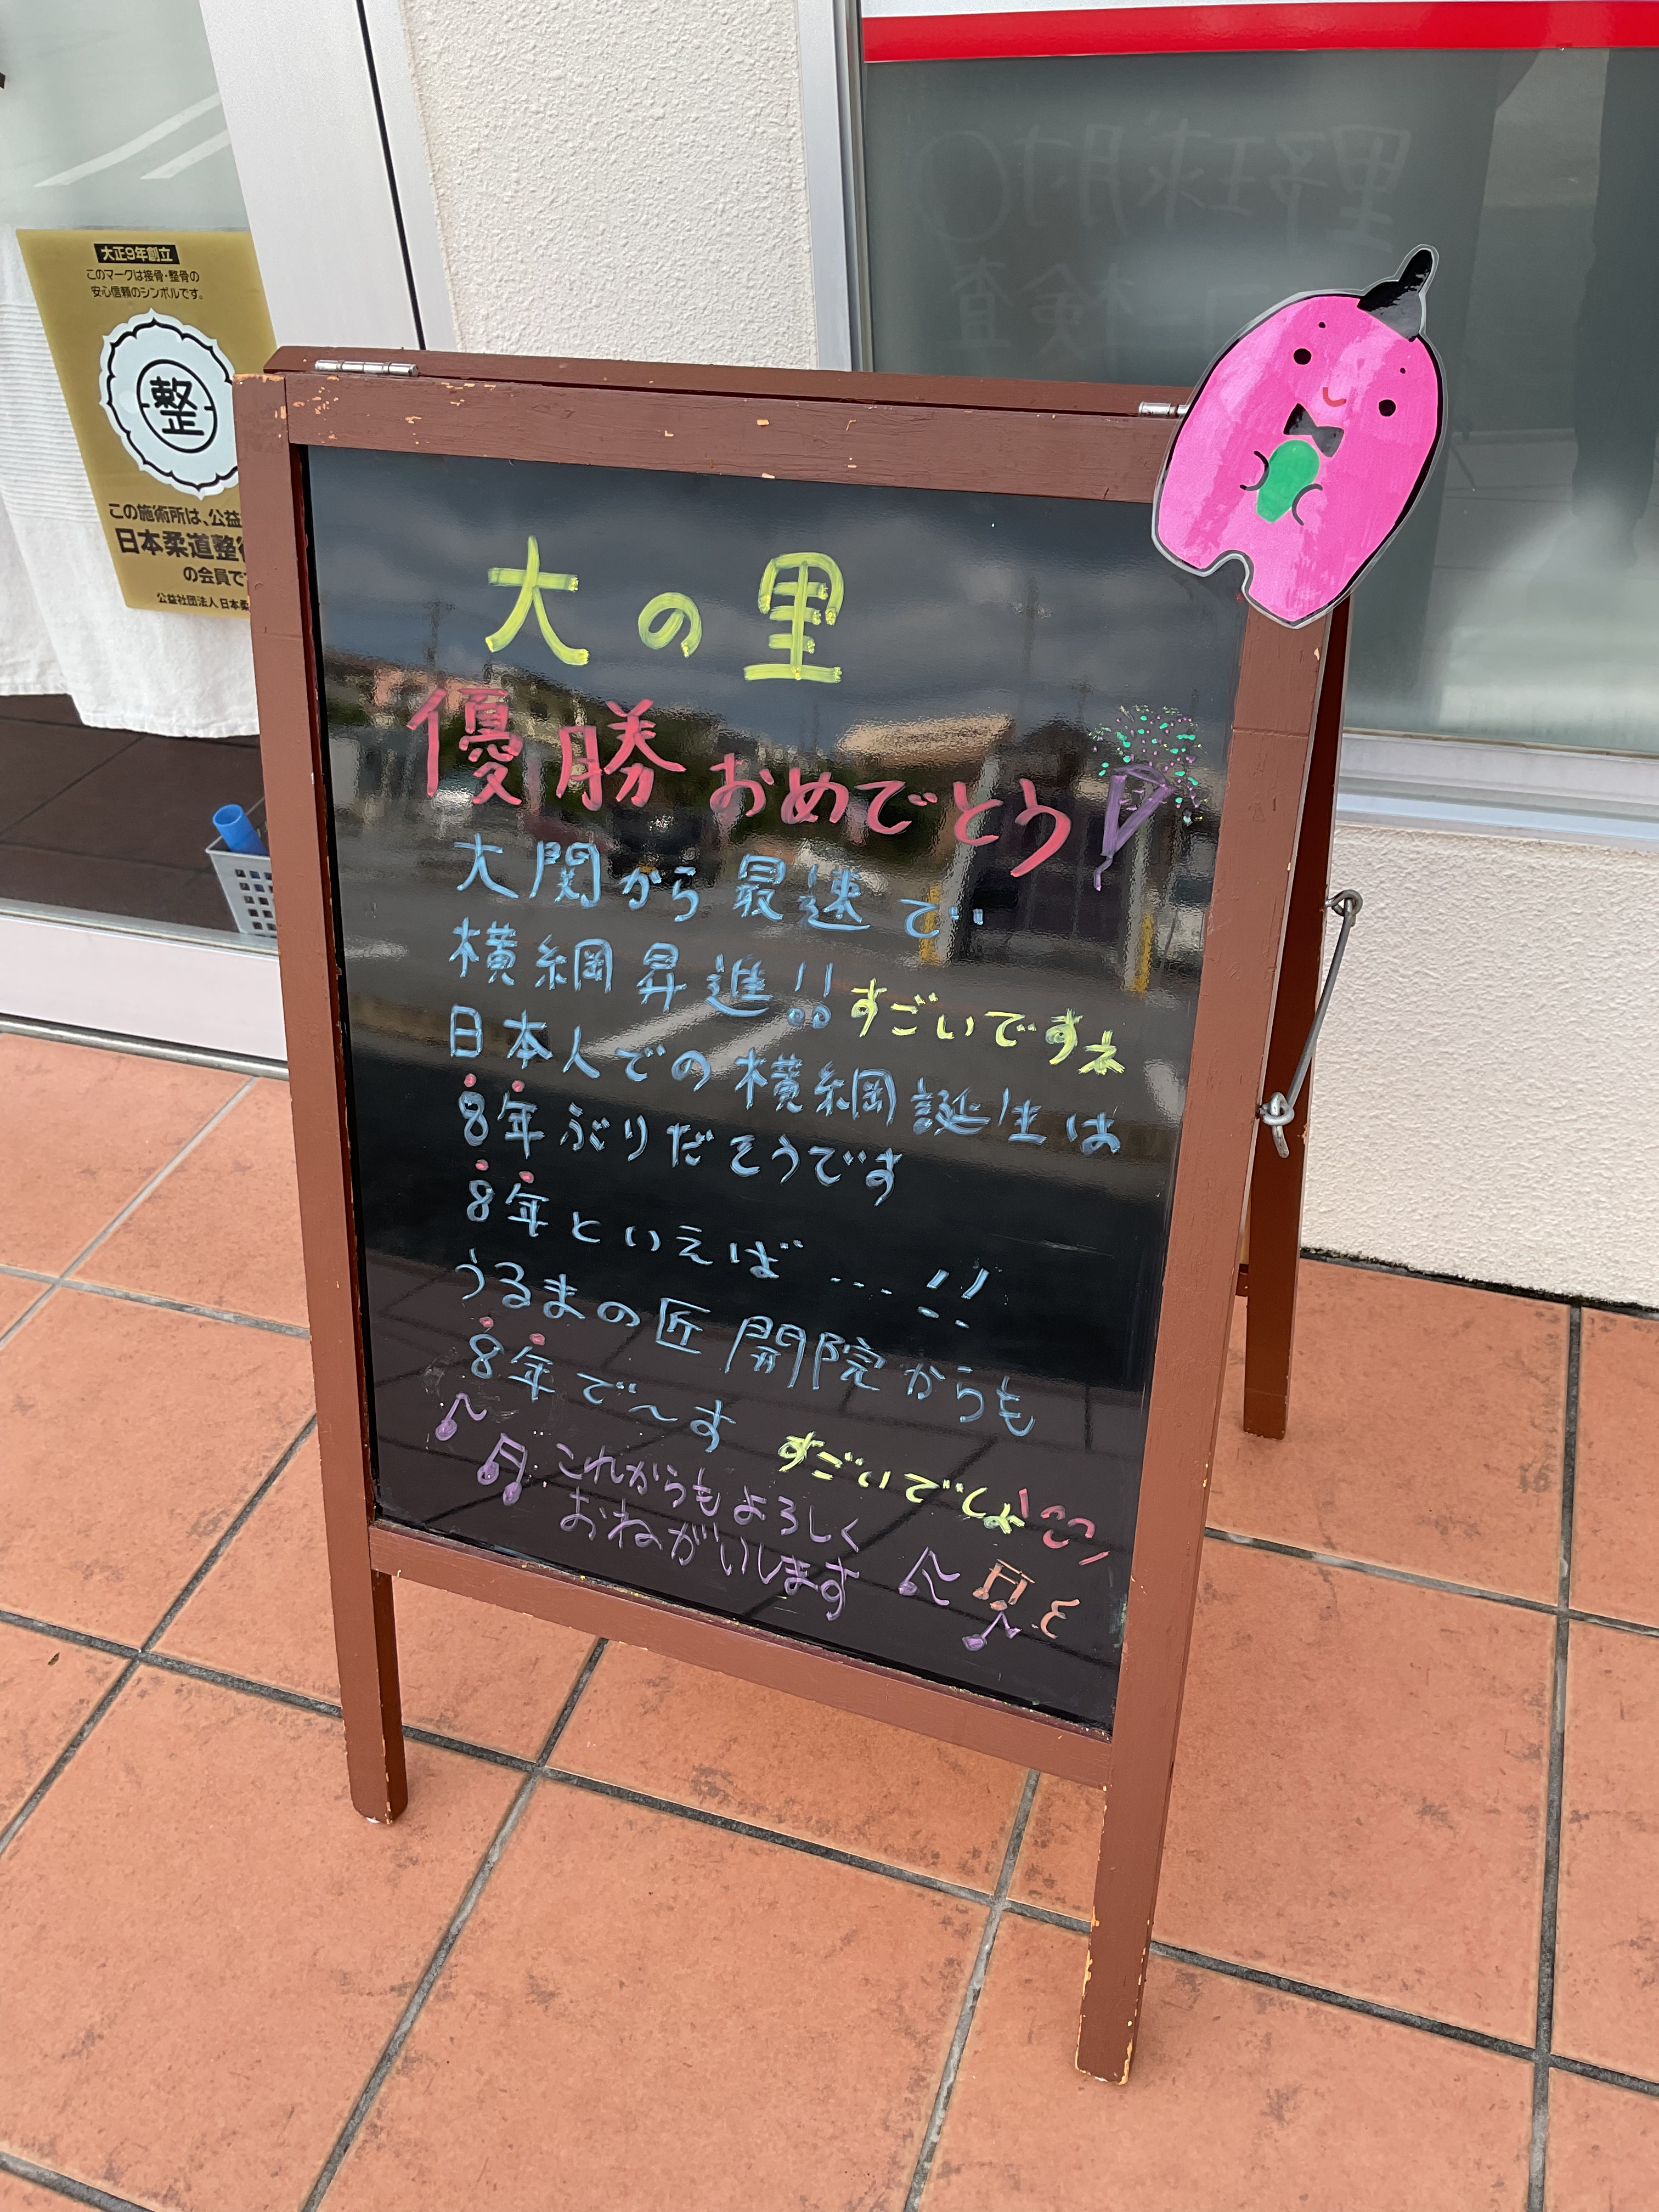 大の里
優勝おめでとう
大関から最速で
横綱昇進!!すごいですネ
日本人での横綱誕生は
8年ぶりだそうです
8年といえば...!!
うるまの匠開院からも
8年で〜す
すごいでしょ
これからもよろしく
おねがいします
大正9年創立
このマークは接骨・整骨の
安心信頼のシンボルです。
整
この施術所は、公益
日本柔道整
の会員で
公益社団法人 日本柔
野球肘
エコー検査